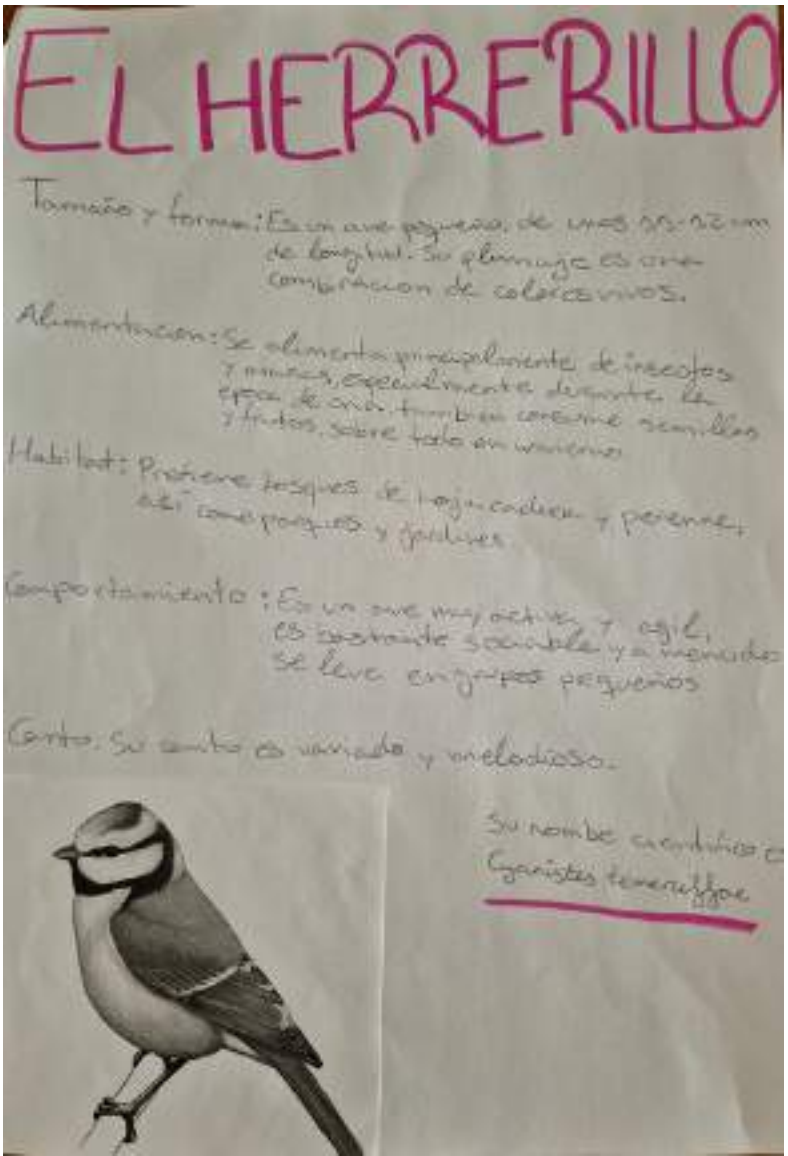 EL HERRERILLO
Tamaño y forma: Es un ave pequeña, de unos 11-12 cm
de longitud. Su plumaje es una
combinación de colores vivos.
Alimentación: Se alimenta principalmente de insectos
y arañas, especialmente durante la
época de cría. también consume semillas
y frutos, sobre todo en invierno
Habitat: Prefiere bosques de hoja caduca y perenne,
así como parques y jardines
Comportamiento: Es un ave muy activa y agil,
es bastante sociable y a menudo
se leva en grupos pequeños
Canto. Su canto es variado y melodioso.
Su nombe cientifico es
Cyanistes teneriffae